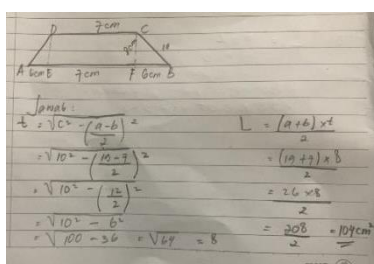 7cm
D C
8cm 10
A 6cm E 7cm F 6cm B
Jawab:
t = √c² - (a-b/2)²
= √10² - (19-7/2)²
= √10² - (12/2)²
= √10² - 6²
= √100 - 36 = √64 = 8
L = (a+b) xt/2
= (19+7) x 8/2
= 26 x 8/2
= 208/2 = 104cm²